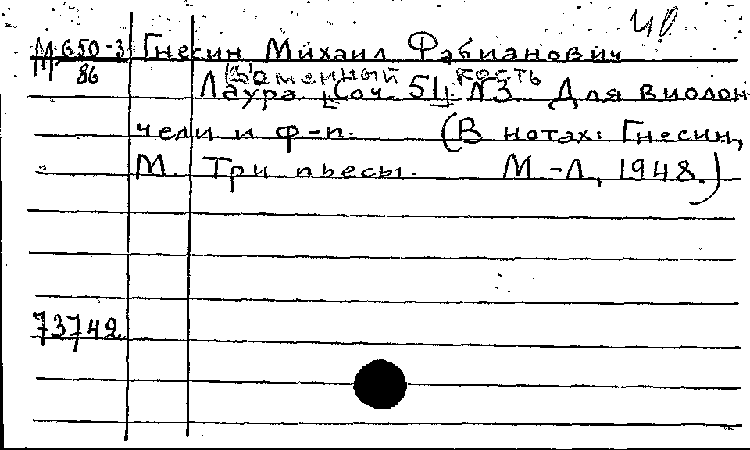 40
М 650-3 Гнесин Михаил Фабианович
86 (Каменный гость)
Лаура [Соч. 51] №3. Для виолон
чели и ф-п. (В нотах: Гнесин,
М. Три пьесы. М.-Л, 1948.)
73742